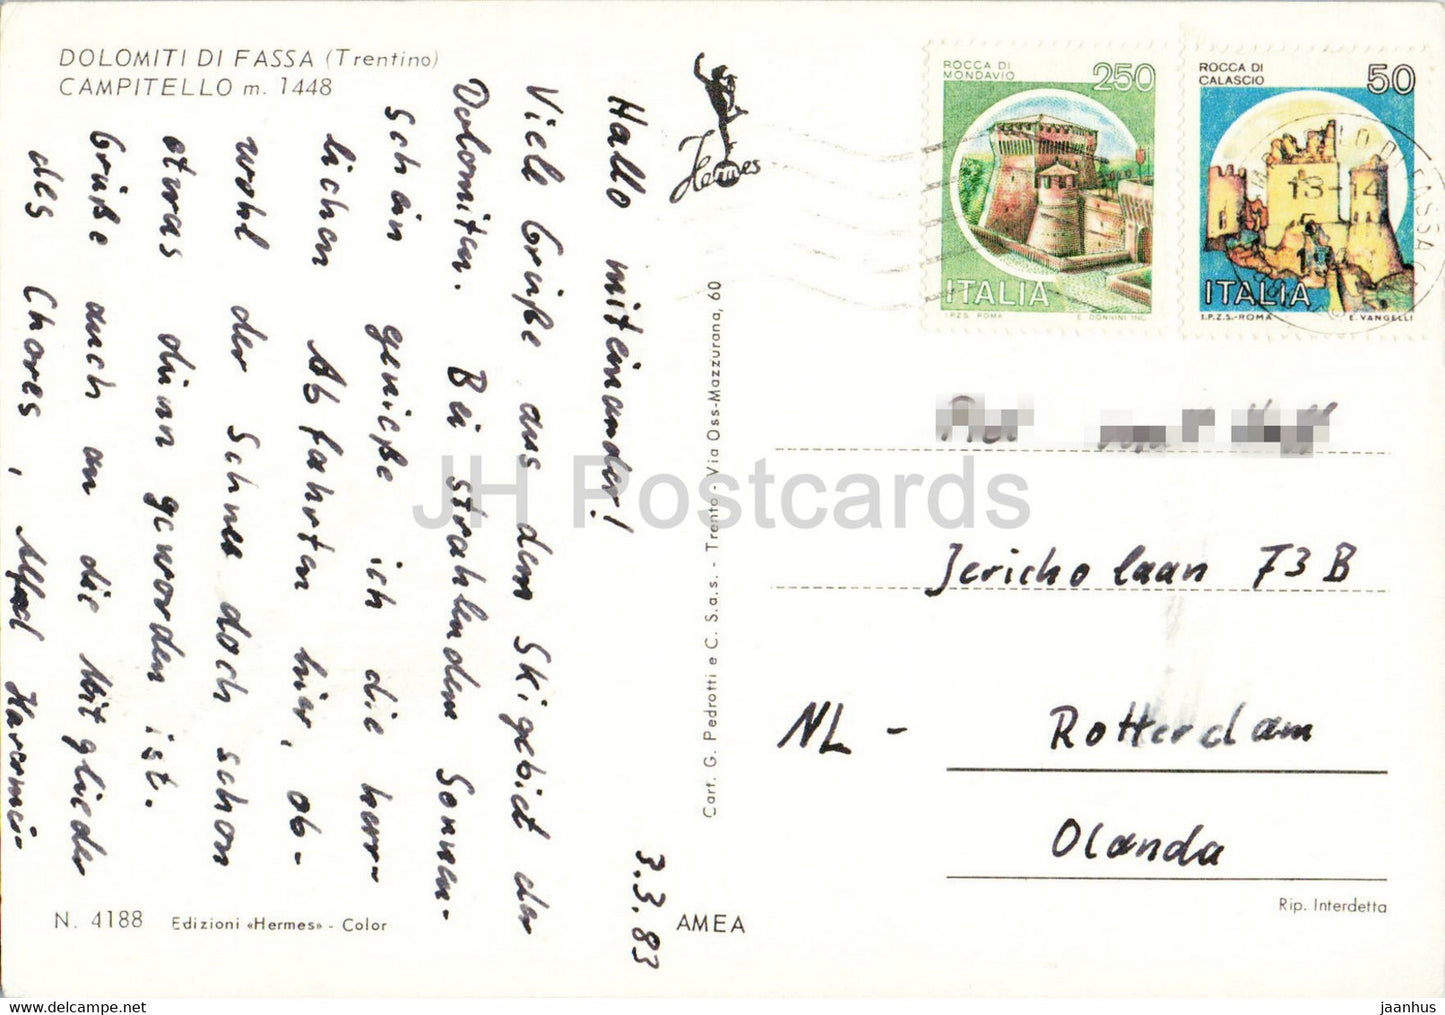 DOLOMITI DI FASSA (Trentino)
CAMPITELLO m. 1448
3.3.83
Hallo miteinander!
Viele Grüße aus dem Skigebiet der
Dolomiten. Bei strahlendem Sonnen-
schein genieße ich die herr-
lichen Abfahrten hier, ob-
wohl der Schnee doch schon
etwas dünn geworden ist.
Grüße auch an die Mitglieder
des Chores,
N. 4188
Edizioni «Hermes» - Color
Hermes
Cart. G. Pedrotti e C. S.a.s. - Trento - Via Oss-Mazzurana, 60
AMEA
ROCCA DI
MONDAVIO
250
ITALIA
I.P.Z.S. ROMA
E. DONNINI INC.
ROCCA DI
CALASCIO
50
ITALIA
I.P.Z.S.-ROMA
E. VANGELLI
13-14
Jericholaan 73 B
NL - Rotterdam
Olanda
Rip. Interdetta
JH Postcards
www.delcampe.net
jaanhus